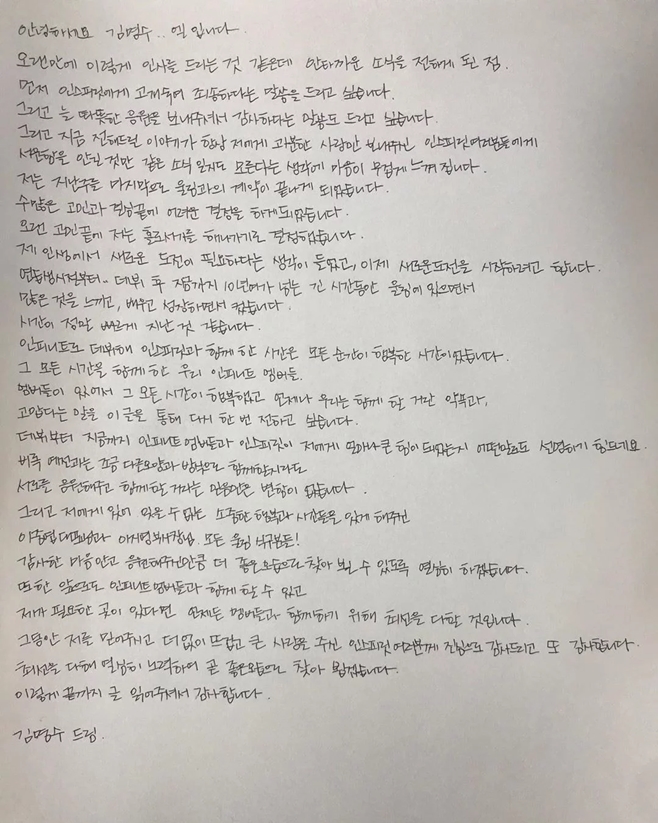 안녕하세요 김명수.. 엘 입니다.
오랜만에 이렇게 인사를 드리는 것 같은데 안타까운 소식을 전하게 된 점.
먼저 인스피릿에게 고개숙여 죄송하다는 말씀을 드리고 싶습니다.
그리고 늘 따뜻한 응원을 보내주셔서 감사하다는 말씀도 드리고 싶습니다.
그리고 지금 전해드린 이야기가 항상 저에게 과분한 사랑만 보내주신 인스피릿여러분들에게
서운함을 안길 것만 같은 소식 일지도 모른다는 생각에 마음이 무겁게 느껴집니다.
저는 지난주를 마지막으로 울림과의 계약이 끝나게 되었습니다.
수많은 고민과 결심끝에 어려운 결정을 하게되었습니다.
오랜 고민끝에 저는 홀로서기를 해나가기로 결정했습니다.
제 인생에서 새로운 도전이 필요하다는 생각이 들었고, 이제 새로운도전을 시작하려고 합니다.
연습생시절부터.. 데뷔 후 지금까지 10년여가 넘는 긴 시간동안 울림에 있으면서
많은 것을 느끼고, 배우고 성장하면서 컸습니다.
시간이 정말 빠르게 지난 것 같습니다.
인피니트로 데뷔해 인스피릿과 함께 한 시간은 모든 순간이 행복한 시간이었습니다.
그 모든 시간을 함께 한 우리 인피니트 멤버들.
멤버들이 있어서 그 모든 시간이 행복했고 언제나 우리는 함께 할 거란 약속과,
고맙다는 말을 이 글을 통해 다시 한 번 전하고 싶습니다.
데뷔부터 지금까지 인피니트 멤버들과 인스피릿이 저에게 얼마나 큰 힘이 되었는지 어떤말로도 설명하기 힘드네요.
비록 예전과는 조금 다른모양과 방식으로 함께할지라도
서로를 응원해주고 함께할거라는 믿음만은 변함이 없습니다.
그리고 저에게 있어 잊을 수 없는 소중한 행복과 시간들을 있게 해주신
이중엽대표님과 이지영부사장님. 모든 울림 식구분들!
감사한 마음안고 응원해주신만큼 더 좋은모습으로 찾아 뵐 수 있도록 열심히 하겠습니다.
또한 앞으로도 인피니트멤버들과 함께 할 수 있고
제가 필요한 곳이 있다면 언제든 멤버들과 함께하기 위해 최선을 다할 것입니다.
그동안 저를 믿어주시고 더없이 뜨겁고 큰 사랑을 주신 인스피릿 여러분께 진심으로 감사드리고 또 감사합니다.
최선을 다해 열심히 노력하여 곧 좋은모습으로 찾아 뵙겠습니다.
이렇게 끝까지 글 읽어주셔서 감사합니다.
김명수 드림.